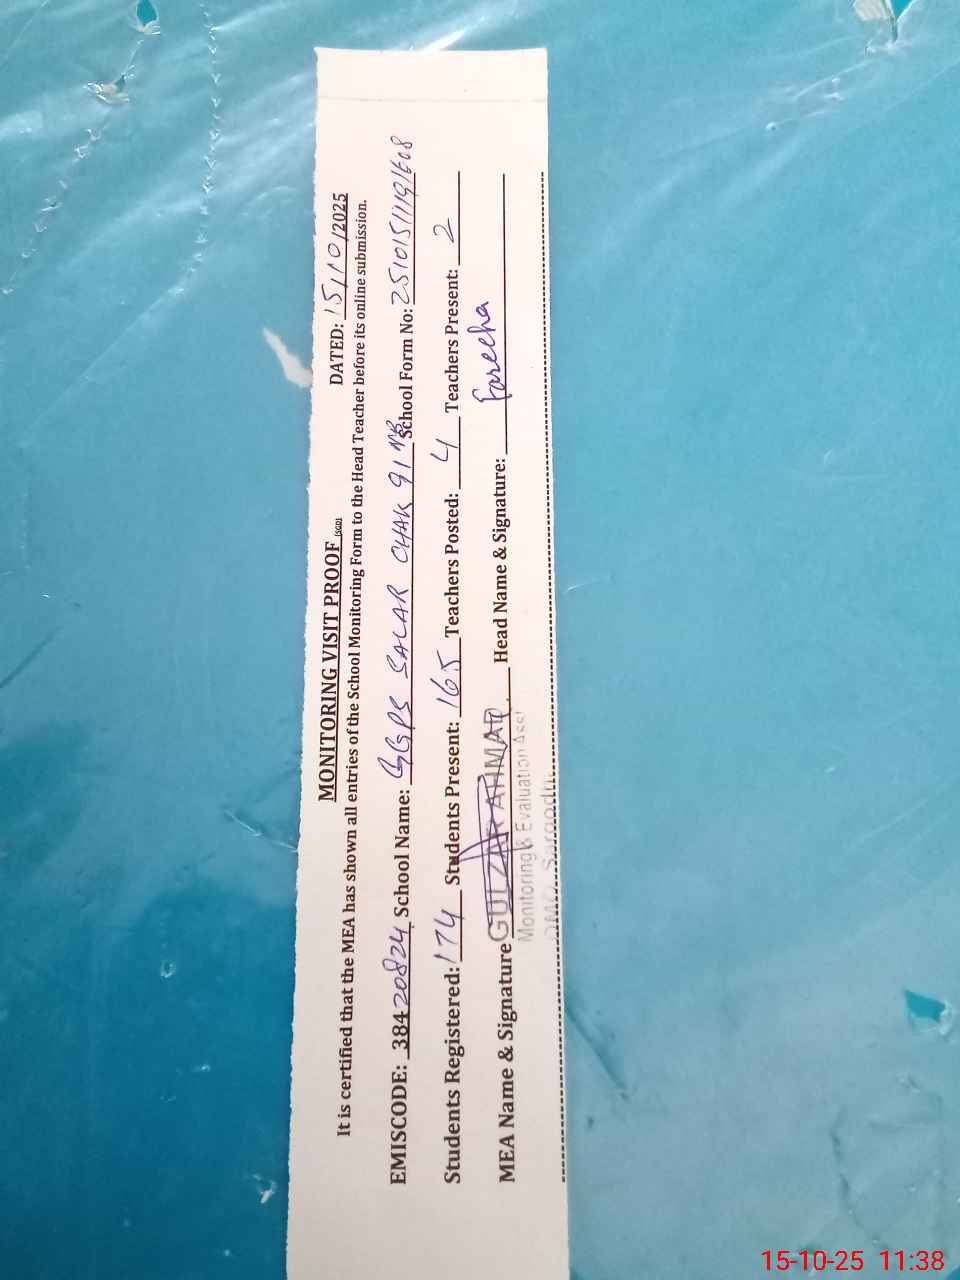 MONITORING VISIT PROOF (SGD)
DATED: 15/10/2025
It is certified that the MEA has shown all entries of the School Monitoring Form to the Head Teacher before its online submission.
EMISCODE: 38420824 School Name: GGPS SALAR CHAK 91 NB School Form No: 251015111191608
Students Registered: 174 Students Present: 165 Teachers Posted: 4 Teachers Present: 2
MEA Name & Signature GULZAR AHMAD Head Name & Signature: Fareeha
Monitoring & Evaluation Asst
DMO Sargodha
15-10-25 11:38